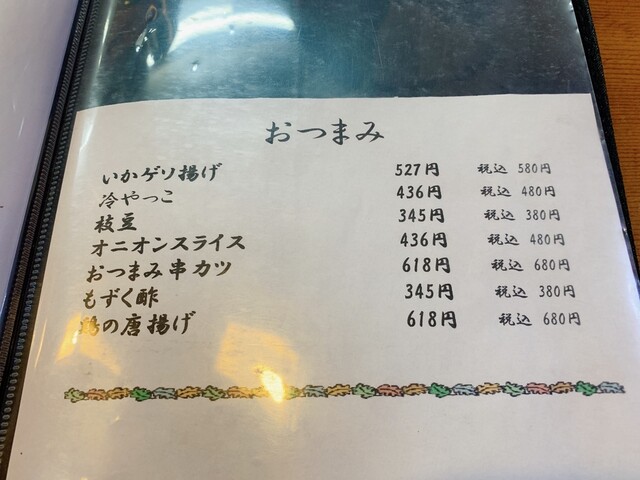 おつまみ
いかゲソ揚げ 527円 税込 580円
冷やっこ 436円 税込 480円
枝豆 345円 税込 380円
オニオンスライス 436円 税込 480円
おつまみ串カツ 618円 税込 680円
もずく酢 345円 税込 380円
鶏の唐揚げ 618円 税込 680円